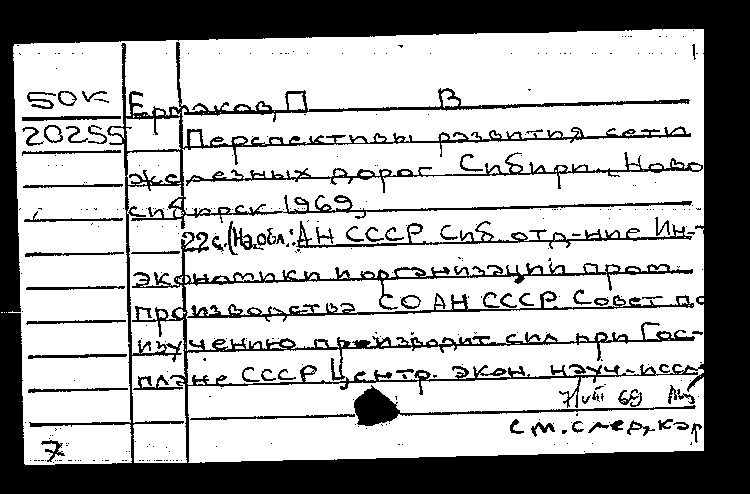 50К Ермаков, П В
20255 Перспективы развития сети
железных дорог Сибири. Ново
сибирск 1969,
22 с. (На обл.: АН СССР. Сиб. отд-ние Ин-т
экономики и организации пром.
производства СО АН СССР. Совет по
изучению производит сил при Гос-
плане СССР. Центр. экон. науч.-иссл
7/VIII 69
см. след. кар
7